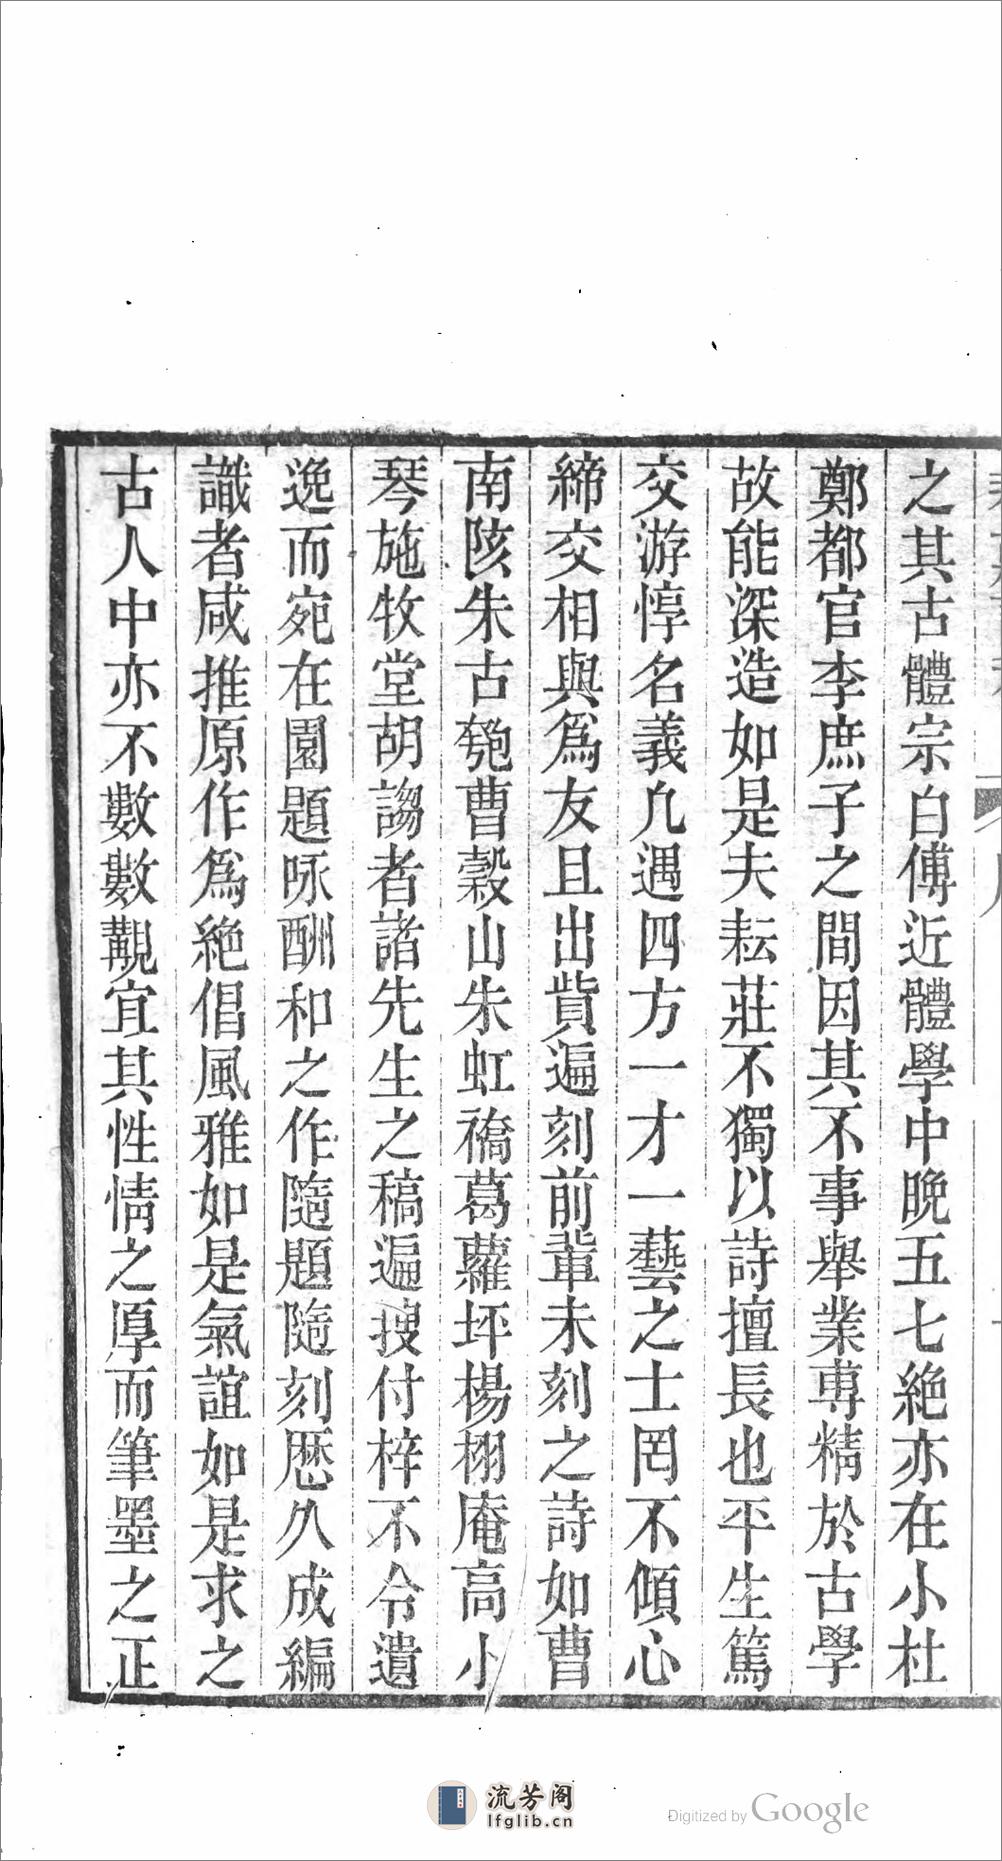 之其古體宗白傅近體學中晚五七絶亦在小杜
鄭都官李庶子之間因其不事舉業專精於古學
故能深造如是夫耘莊不獨以詩擅長也平生篤
交游惇名義凢遇四方一才一藝之士罔不傾心
締交相與爲友且出貲遍刻前輩未刻之詩如曹
南陔朱古匏曹穀山朱虹橋葛蘿坪楊栩庵高小
琴施牧堂胡謅者諸先生之稿遍搜付梓不令遺
逸而宛在園題咏酬和之作隨題隨刻歷久成編
識者咸推原作爲絶倡風雅如是氣誼如是求之
古人中亦不數數覯宜其性情之厚而筆墨之正
流芳阁
lfglib.cn
Digitized by Google